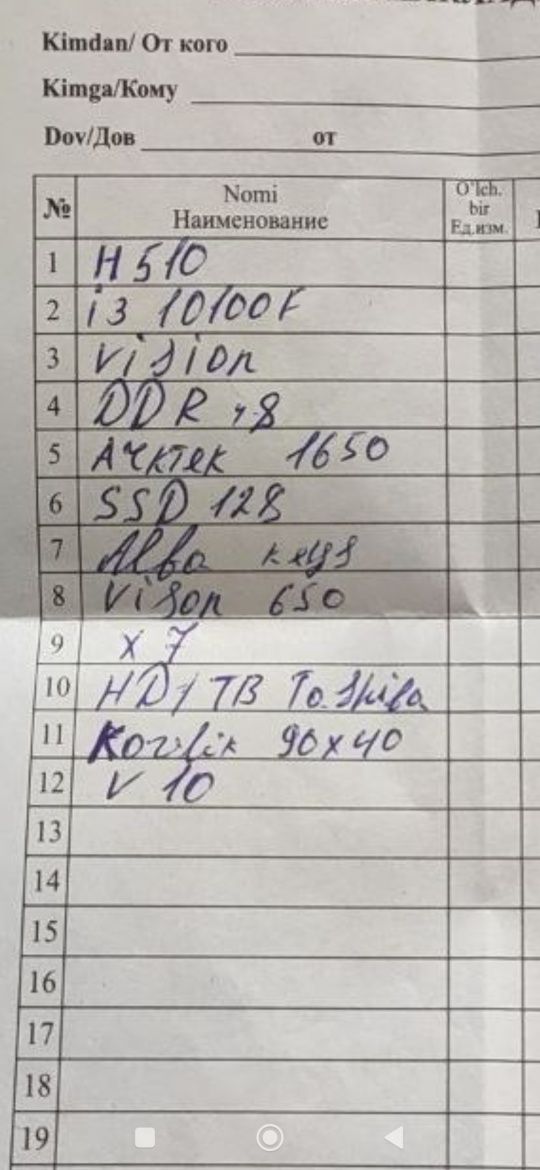 Kimdan/ От кого
Kimga/Кому
Dov/Дов от
№ Nomi Наименование O'lch. bir Ед.изм.
1 H510
2 i3 10100F
3 Vision
4 DDR 4.8
5 1650
6 SSD 128
7 Alba кейs
8 Vison 650
9 x 7
10 HD 1 TB Toshiba
11 Kovrik 90x40
12 V 10
13
14
15
16
17
18
19